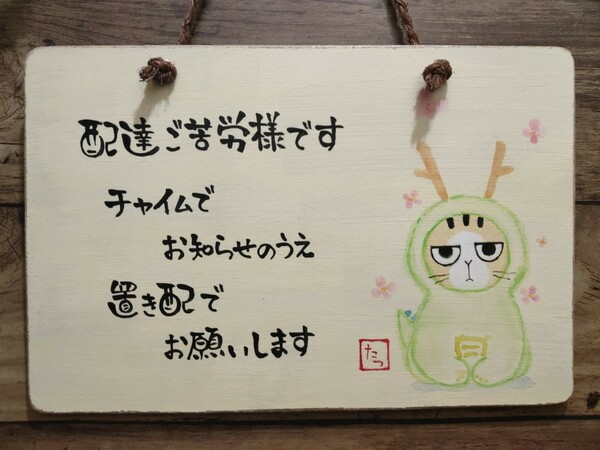 配達ご苦労様です
チャイムで
お知らせのうえ
置き配で
お願いします
たつ